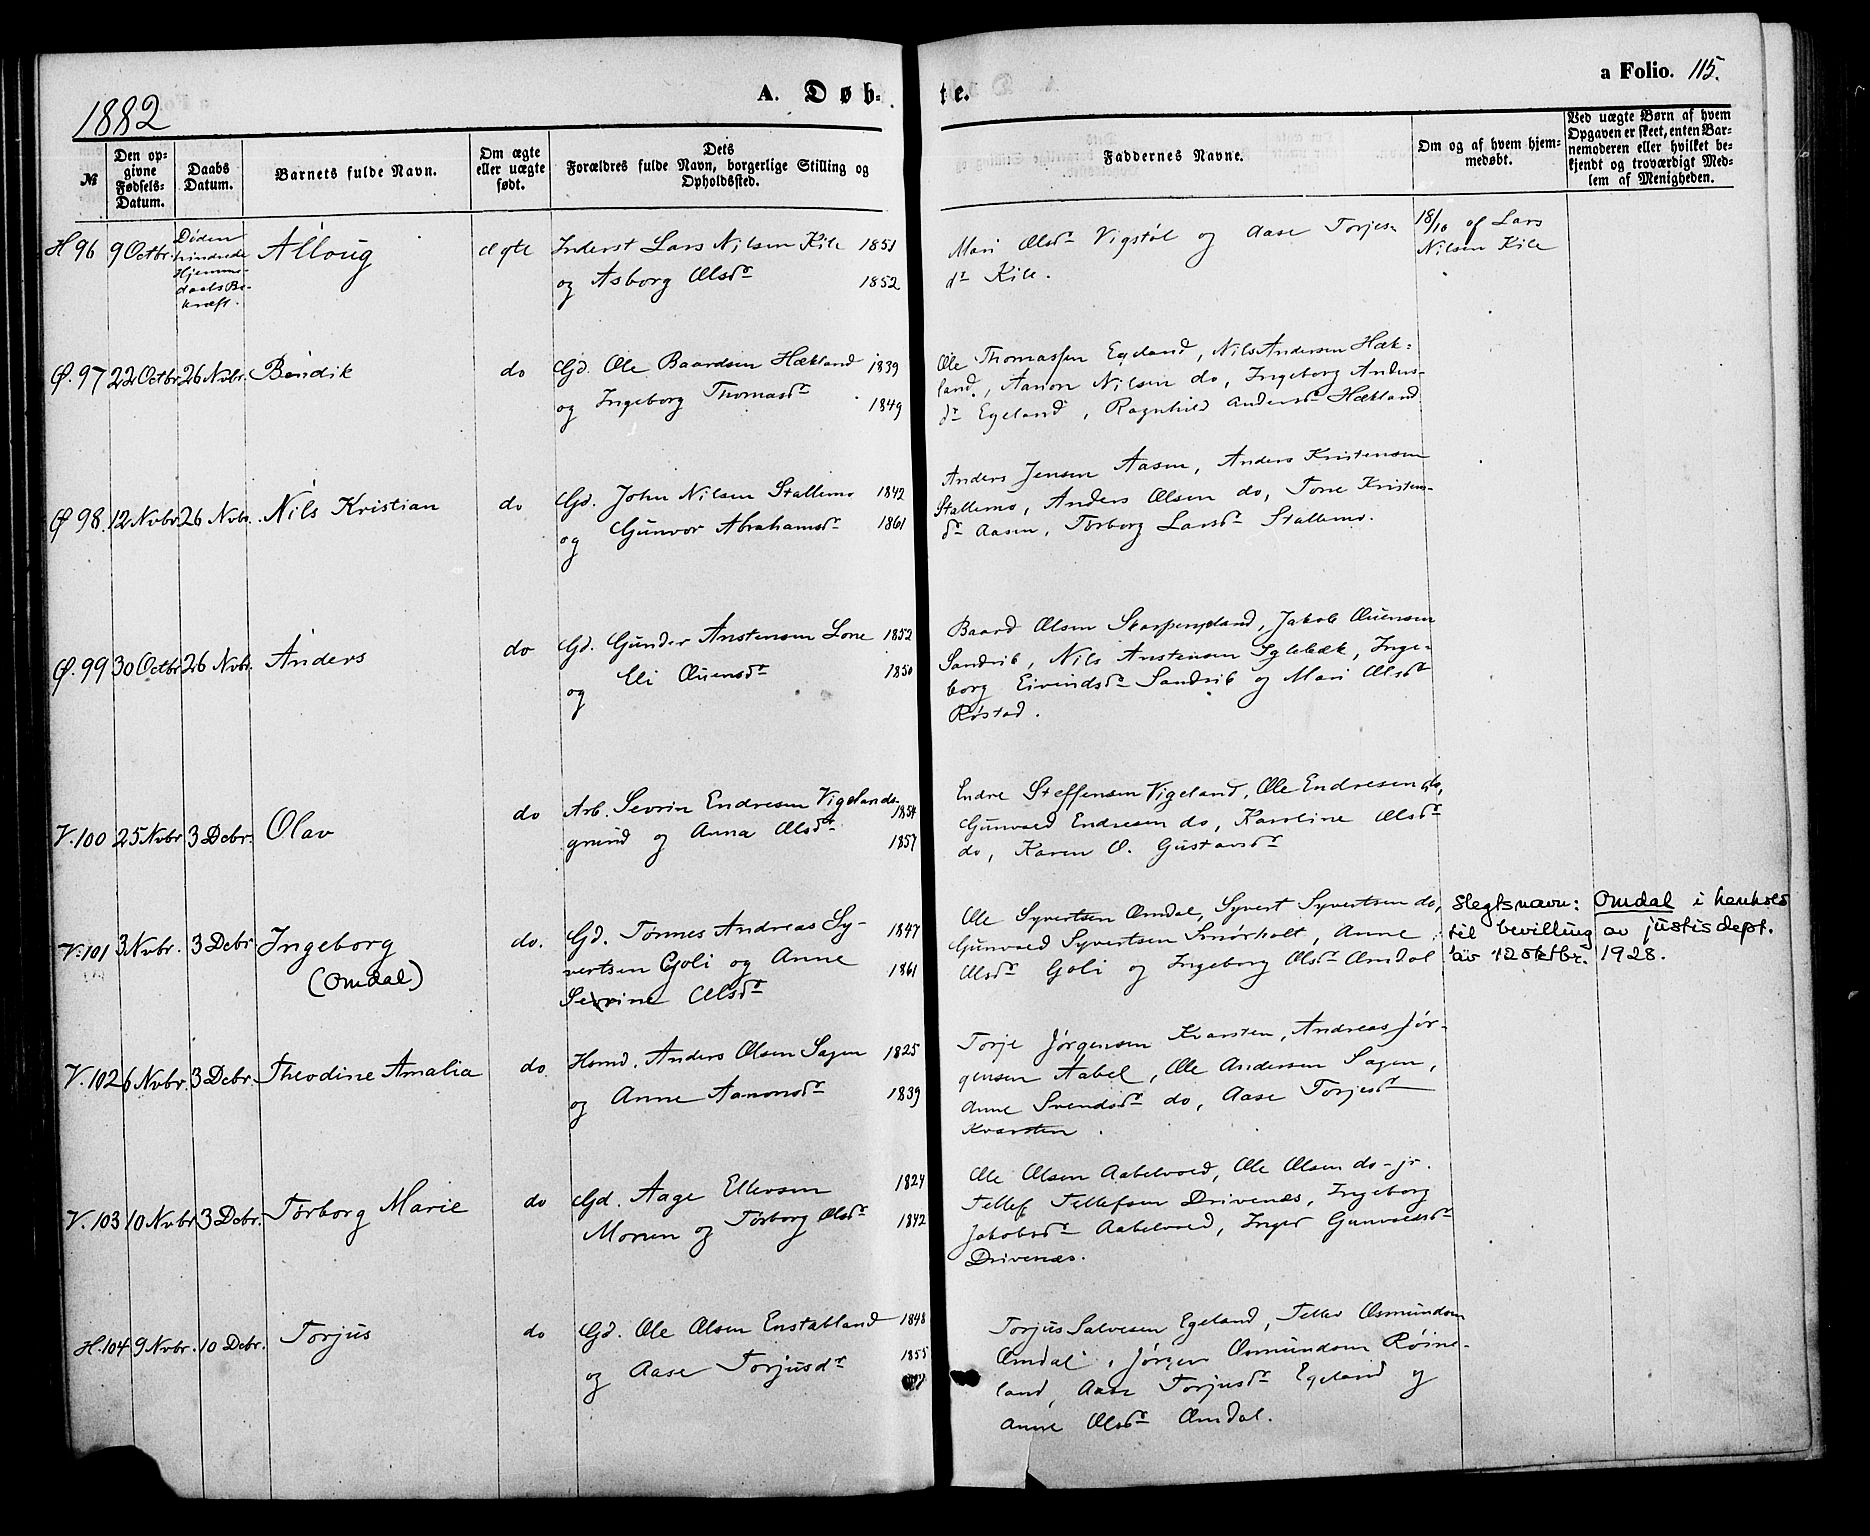 1882
A. Døb-
te.
a Folio. 115.
№
Den op-
givne
Fødsels-
Datum.
Daabs
Datum.
Barnets fulde Navn.
Om ægte
eller uægte
født.
Dets
Forældres fulde Navn, borgerlige Stilling og
Opholdssted.
Faddernes Navne.
Om og af hvem hjem-
medøbt.
Ved uægte Børn af hvem
Opgaven er skeet, enten Bar-
nemoderen eller hvilket be-
kjendt og troværdigt Med-
lem af Menigheden.
H 96 9 Octbr.
Døden
hindrede
Hjemme-
daabs Be-
kræft.
Alloug
ægte
Inderst Lars Nilsen Kile 1851
og Asborg Olsdr 1852
Mari Olsdr Vigstøl og Aase Torjes-
dr Kile.
18/10 af Lars
Nilsen Kile
Ø. 97 22 Octbr. 26 Nvbr. Bendik
do
Gd. Ole Baardsen Hækland 1839
og Ingeborg Thomasdr 1849
Ole Thomassen Egeland, Nils Andersen Hæk-
land, Aanon Nilsen do, Ingeborg Anders-
dr Egeland, Ragnhild Andersdr Hækland
Ø. 98. 12 Nvbr. 26 Nvbr. Nils Kristian
do
Gd. John Nilsen Stallemo 1842
og Gunvor Abrahamsdr 1861
Anders Jensen Aasen, Anders Kristensen
Stallemo, Anders Olsen do, Tone Kristens-
dr Aasen, Torborg Larsdr Stallemo.
Ø. 99 30 Octbr. 26 Nvbr. Anders
do
Gd. Gunder Anstensen Lone 1852
og Eli Ouensdr 1850
Baard Olsen Skarpengland, Jakob Ouensen
Sandrib, Nils Anstensen Iglebæk, Inge-
borg Eivindsdr Sandrib og Mari Olsdr
Røstad.
V. 100 25 Nvbr 3 Debr. Olav
do
Arb. Sevrin Endresen Vigelands- 1854
grund og Anna Olsdr 1857
Endre Steffensen Vigeland, Ole Endresen do,
Gunvald Endresen do, Karoline Olsdr
do, Karen O. Gustavsdr
V. 101 3 Nvbr. 3 Debr Ingeborg
(Omdal)
do.
Gd. Tønnes Andreas Sy- 1847
vertsen Goli og Anne 1861
Sevrine Olsdr
Ole Syvertsen Omdal, Syvert Syvertsen do,
Gunvald Syvertsen Snørholt, Anne
Olsdr Goli og Ingeborg Olsdr Omdal
Slegtsnavn: Omdal i henhold
til bevilling av justisdept.
av 12 oktbr. 1928.
V. 102 6 Nvbr. 3 Debr. Theodine Amalia
do.
Hsmd. Anders Olsen Sagen 1825
og Anne Aanonsdr 1839
Torje Jørgensen Kvarsten, Andreas Jør-
gensen Aabel, Ole Andersen Sagen,
Anne Svendsdr do, Aase Torjesdr
Kvarsten.
V. 103 10 Nvbr 3 Debr. Torborg Marie
do
Gd. Aage Ellevsen 1824
Monen og Torborg Olsdr 1842
Ole Olsen Aabelvold, Ole Olsen do - jr.
Tellef Tellefsen Drivenæs, Ingeborg
Jakobsdr Aabelvold, Inger Gunvaldsdr
Drivenæs.
H. 104 9 Nvbr. 10 Debr. Torjus
do
Gd. Ole Olsen Enstabland 1848
og Aase Torjusdr 1855
Torjus Salvesen Egeland, Tellev Osmundsen
Omdal, Jørgen Osmundsen Røine-
land, Aase Torjusdr Egeland og
Anne Olsdr Omdal.